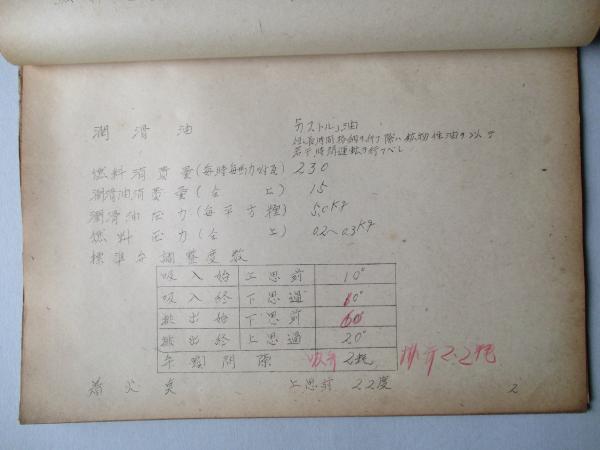 潤滑油 カストル油
但シ長時間格納ヲ行フ際ハ鉱物性油ヲ以テ
若干時間運転ヲ行フベシ
燃料消費量(毎時毎馬力 瓦) 230
潤滑油消費量(仝上) 15
潤滑油圧力(毎平方糎) 5.0kg
燃料圧力(仝上) 0.2〜0.3kg
標準弁調整度数
吸入始 上思前 10°
吸入終 下思過 60°
排出始 下思前 60°
排出終 上思過 20°
弁間隙 吸弁 2粍 排弁2.2粍
着火 上思前 22度
2